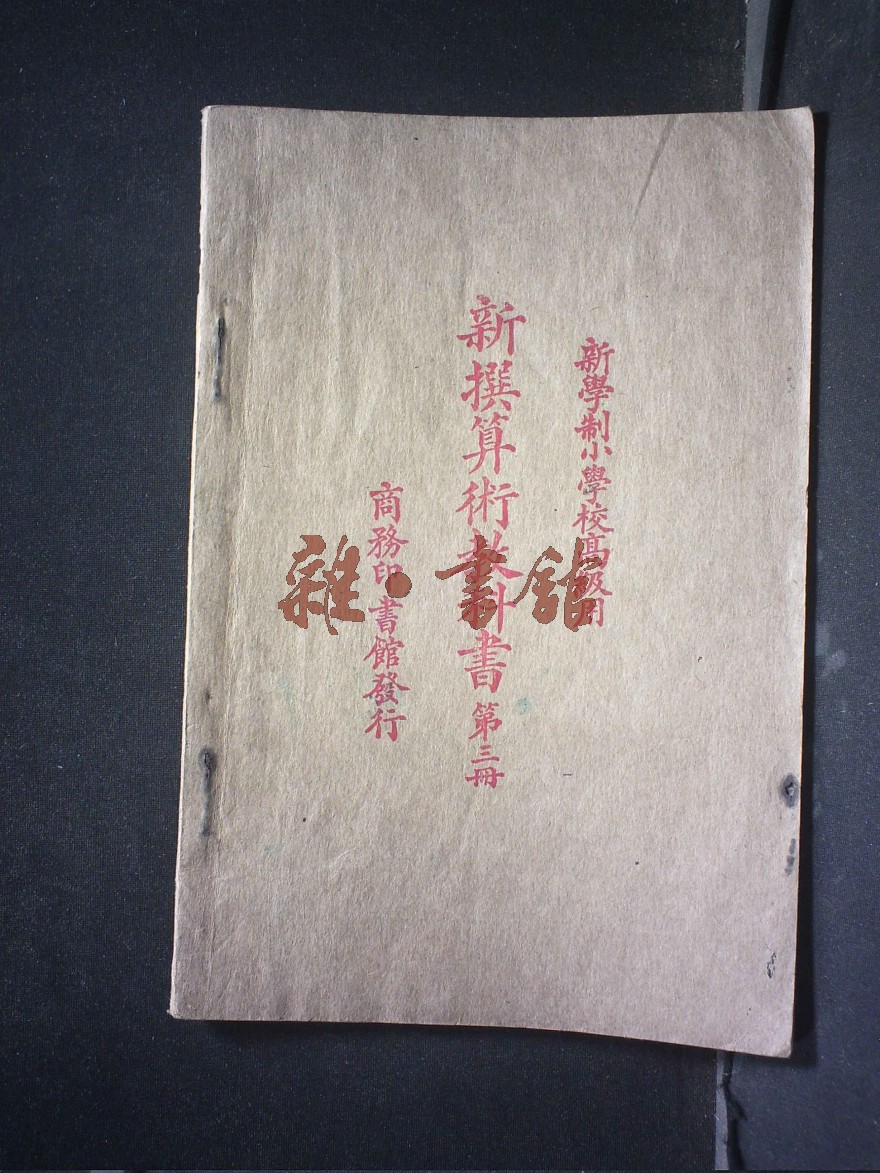 新學制小學校高級用
新撰算術教科書 第三冊
商務印書館發行
雜·書舘